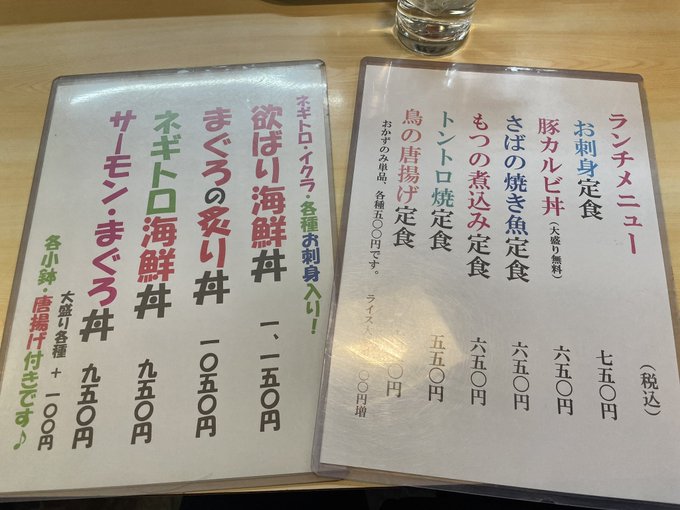 ランチメニュー (税込)
お刺身定食 七五〇円
豚カルビ丼(大盛り無料) 六五〇円
さばの焼き魚定食 六五〇円
もつの煮込み定食 六五〇円
トントロ焼定食 五五〇円
鳥の唐揚げ定食 〇円
おかずのみ単品、各種五〇〇円です。 ライス 〇〇円増
ネギトロ・イクラ・各種お刺身入り!
欲ばり海鮮丼 一、一五〇円
まぐろの炙り丼 一〇五〇円
ネギトロ海鮮丼 九五〇円
サーモン・まぐろ丼 九五〇円
大盛り各種 + 一〇〇円
各小鉢・唐揚げ付きです♪